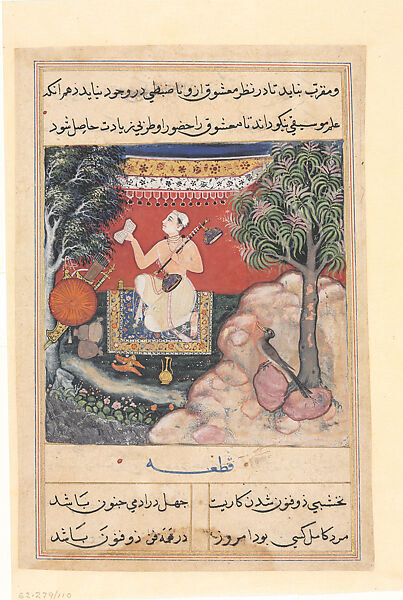 ومقرب نباید تا در نظر معشوق ازو نا ضبطی در وجود نیاید دهم آنکه
علم موسیقی نیکو داند تا معشوق را حضور او طربی زیادت حاصل شود
قطعه
نخشبی ذوفنون شدن کاریست جهل در آدمی جنون باشد
مرد کامل کسی بود امروز در همه فن ذوفنون باشد
62-279/110